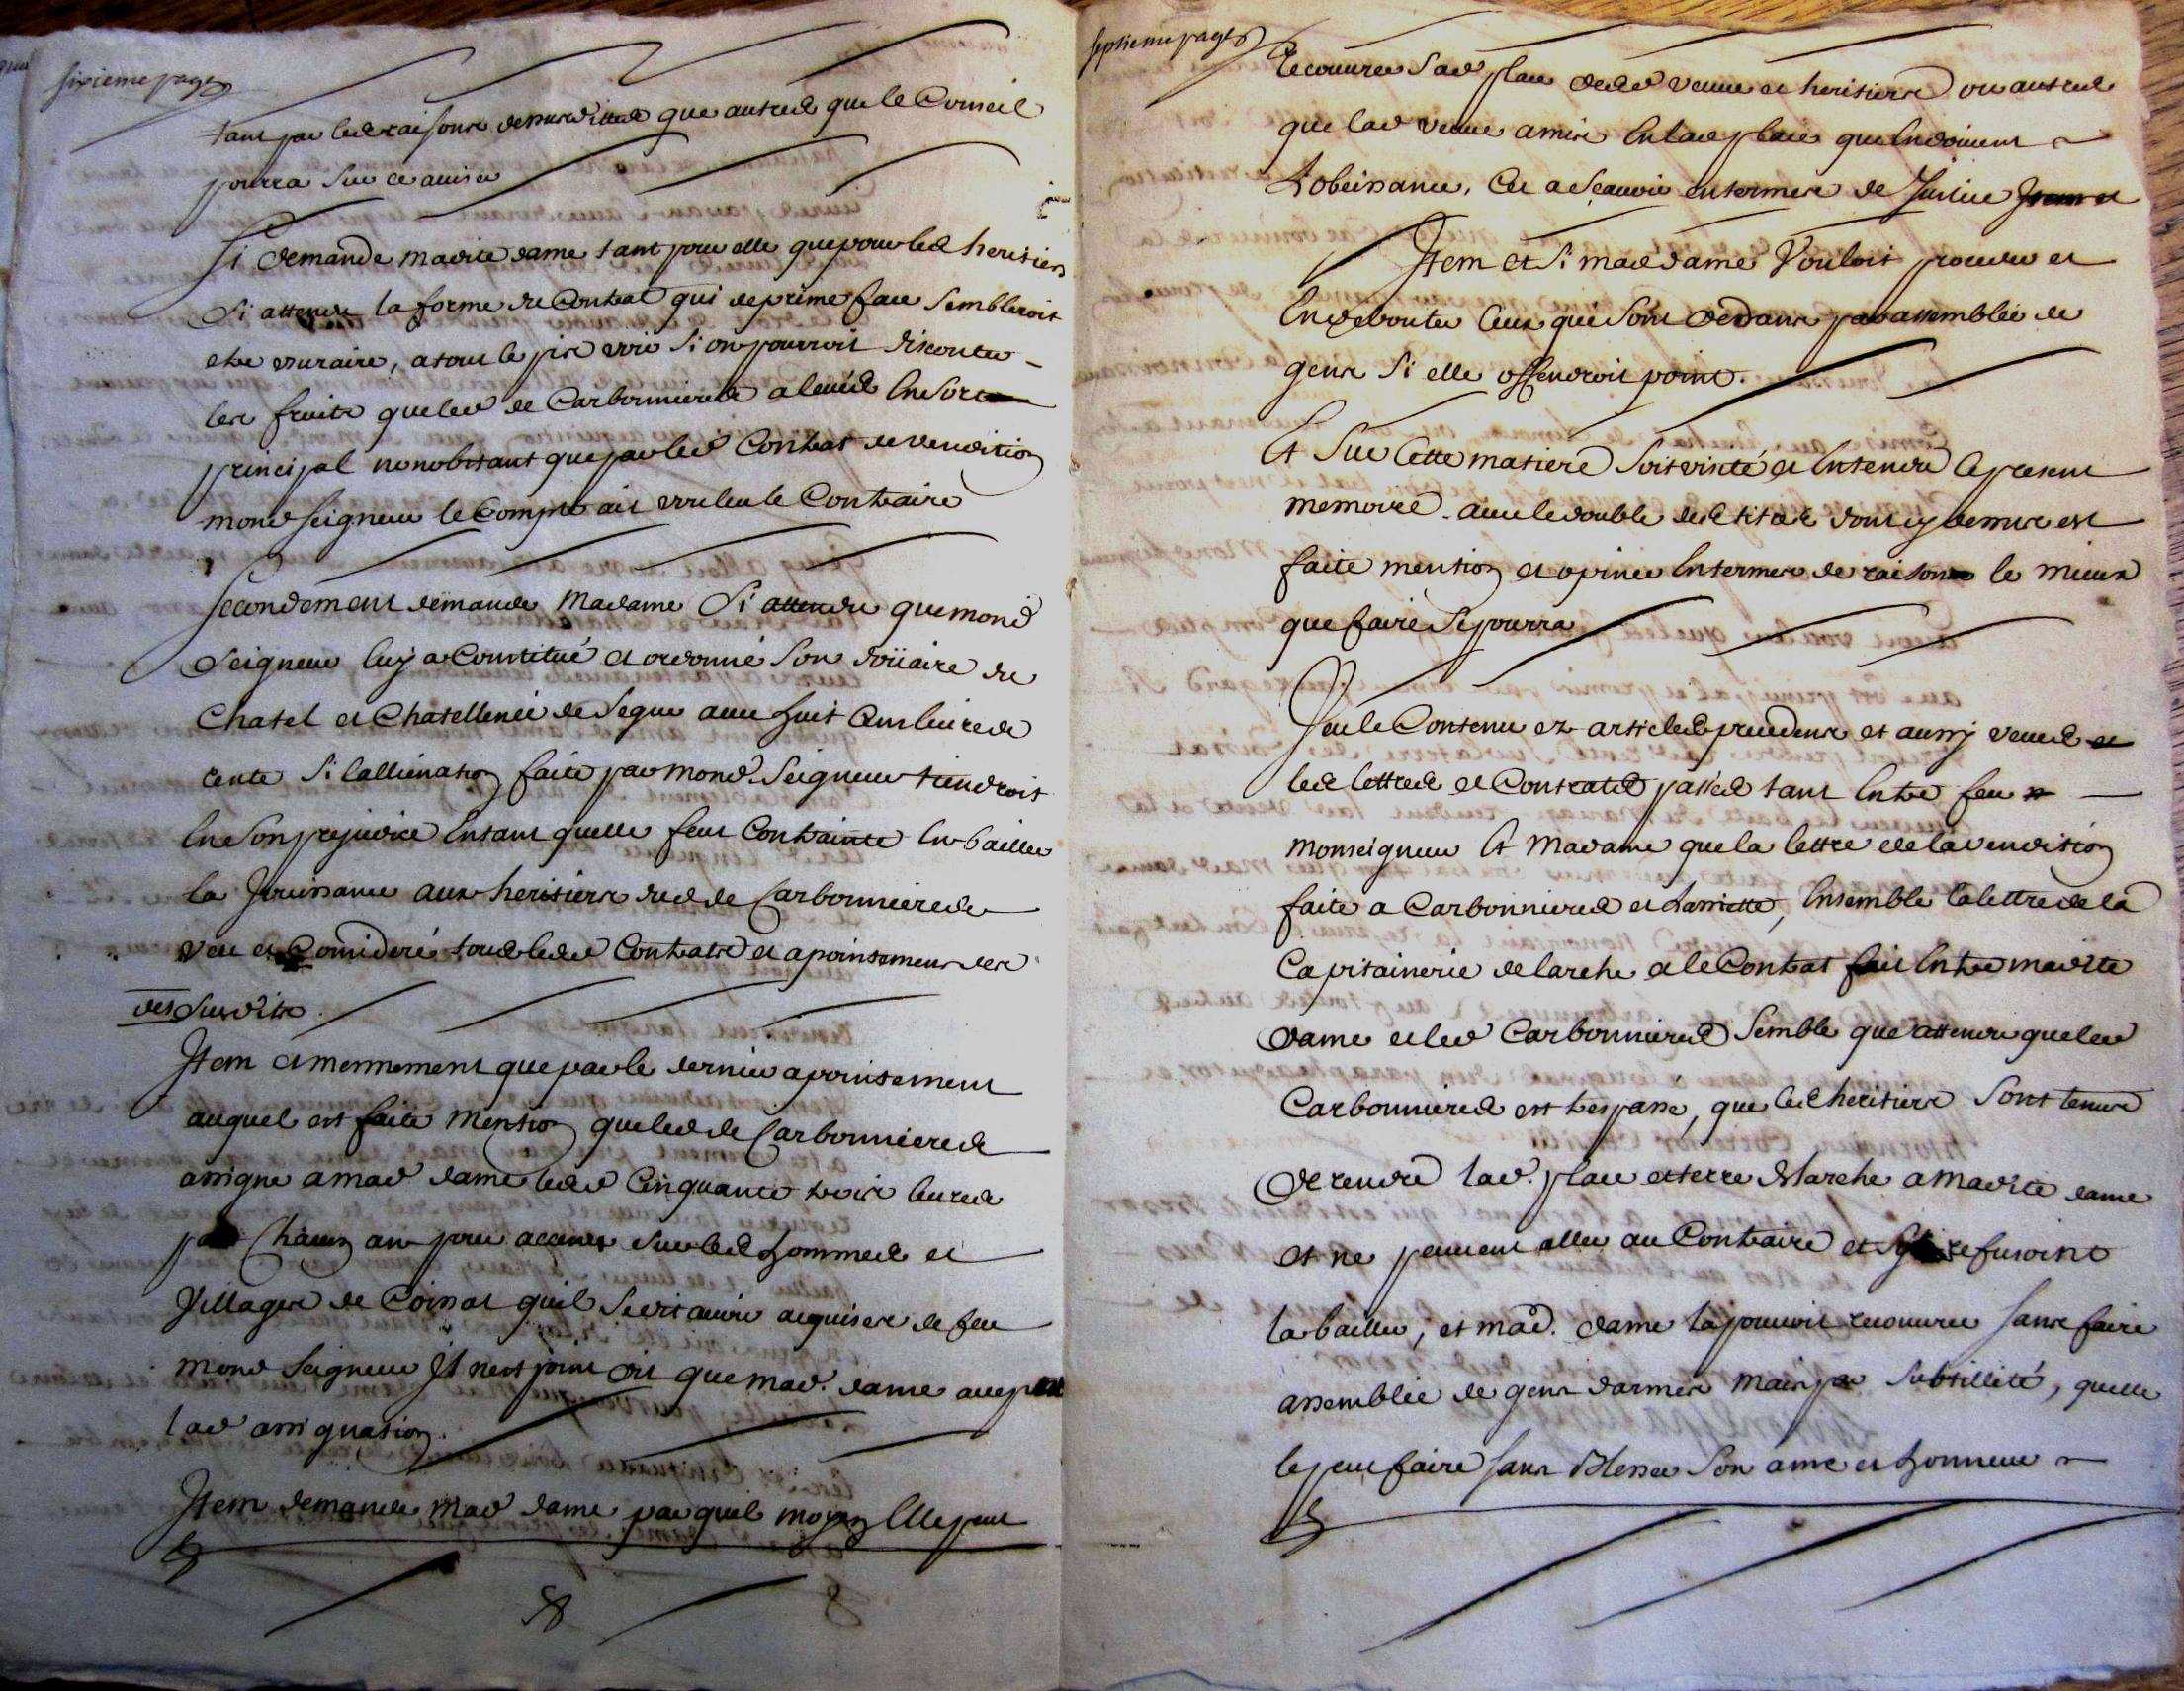 sixieme page
tant par les raisons dessusdittes que autres que le Conseil
pourra sur ce aviser
Si demande madite dame tant pour elle que pour les heritiers
Si attendu la forme du Contrat qui de prime face sembleroit
estre usuraire, a tout le pis voir si on pourroit disconter
les fruits que led de Carbonnieres a levés en sort
principal nonobstant que par led Contrat de vendition
mond seigneur le Compte ait voulu le Contraire
secondement demande madame Si attendu que mond
Seigneur luy a Constitué et ordonné son doüaire du
Chatel et Chatellenie de Segur avec huit Cens livres de
rente Si lalliénation faite par mond. Seigneur tiendroit
en son prejudice entant quelle feut Contrainte en bailler
la Jouissance aux heritiers dud de Carbonnieres
veu et Considéré tous lesd Contrats et apointemens
des susdits
Item et mesmement que par le dernier apointement
auquel est faite mention que led de Carbonnieres
assigne a mad dame lesd Cinquante trois livres
par Chacun an pour accenses sur les hommes et
Villages de Coissat quil se dit avoir acquises de feu
mond Seigneur Il nest point dit que mad. dame accepte
lad assignation.
Item demande mad dame par quel moyen Elle peut
septieme page
Recouvrer lad place desd veuve et heritiers ou autres
que lad veuve a mise en lad place que en doivent
Lobeissance, Cet a scavoir en termes de Justice Item et
Item et Si mad dame Vouloit proceder et
en debouter ceux qui sont dedans par assemblée de
gens si elle offendroit point.
Et sur Cette matiere soit visité et entendu le present
memoire avec le double des titres dont cy dessus est
faite mention et opiner en termes de raison le mieux
que faire se pourra
Veu le Contenu ez articles precedens et aussy veues et
les lettres et Contrats passés tant entre feu
monseigneur Et Madame que la lettre de la vendition
faite a Carbonnieres et Ensemble la lettre de la
Capitainerie de larche et le Contrat fait entre madite
dame et led Carbonnieres Semble que attendu que led
Carbonnieres est trespassé, que les heritiers sont tenus
de rendre lad. place et terre de larche a madite dame
et ne peuvent aller au Contraire et refusoint
la bailler, et mad. dame la pouvoit recouvrer sans faire
assemblée de gens darmes mais par subtillité, quelle
le peut faire sans blesser son ame et honneur